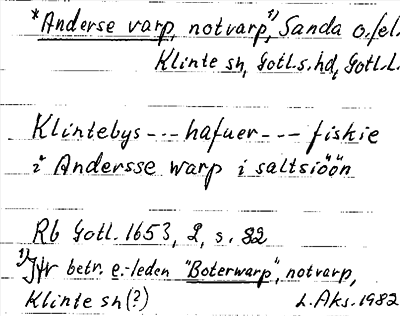 *Anderse varp, notvarp,¹⁾ Sanda o./el.
Klinte sn, Gotl.s. hd, Gotl.L.
Klintebys --- hafuer --- fiskie
i Andersse warp i saltsiöön
Rb Gotl. 1653, 2, s. 82
¹⁾Jfr betr. e.-leden "Boterwarp", notvarp,
Klinte sn(?)
L.Aks. 1982